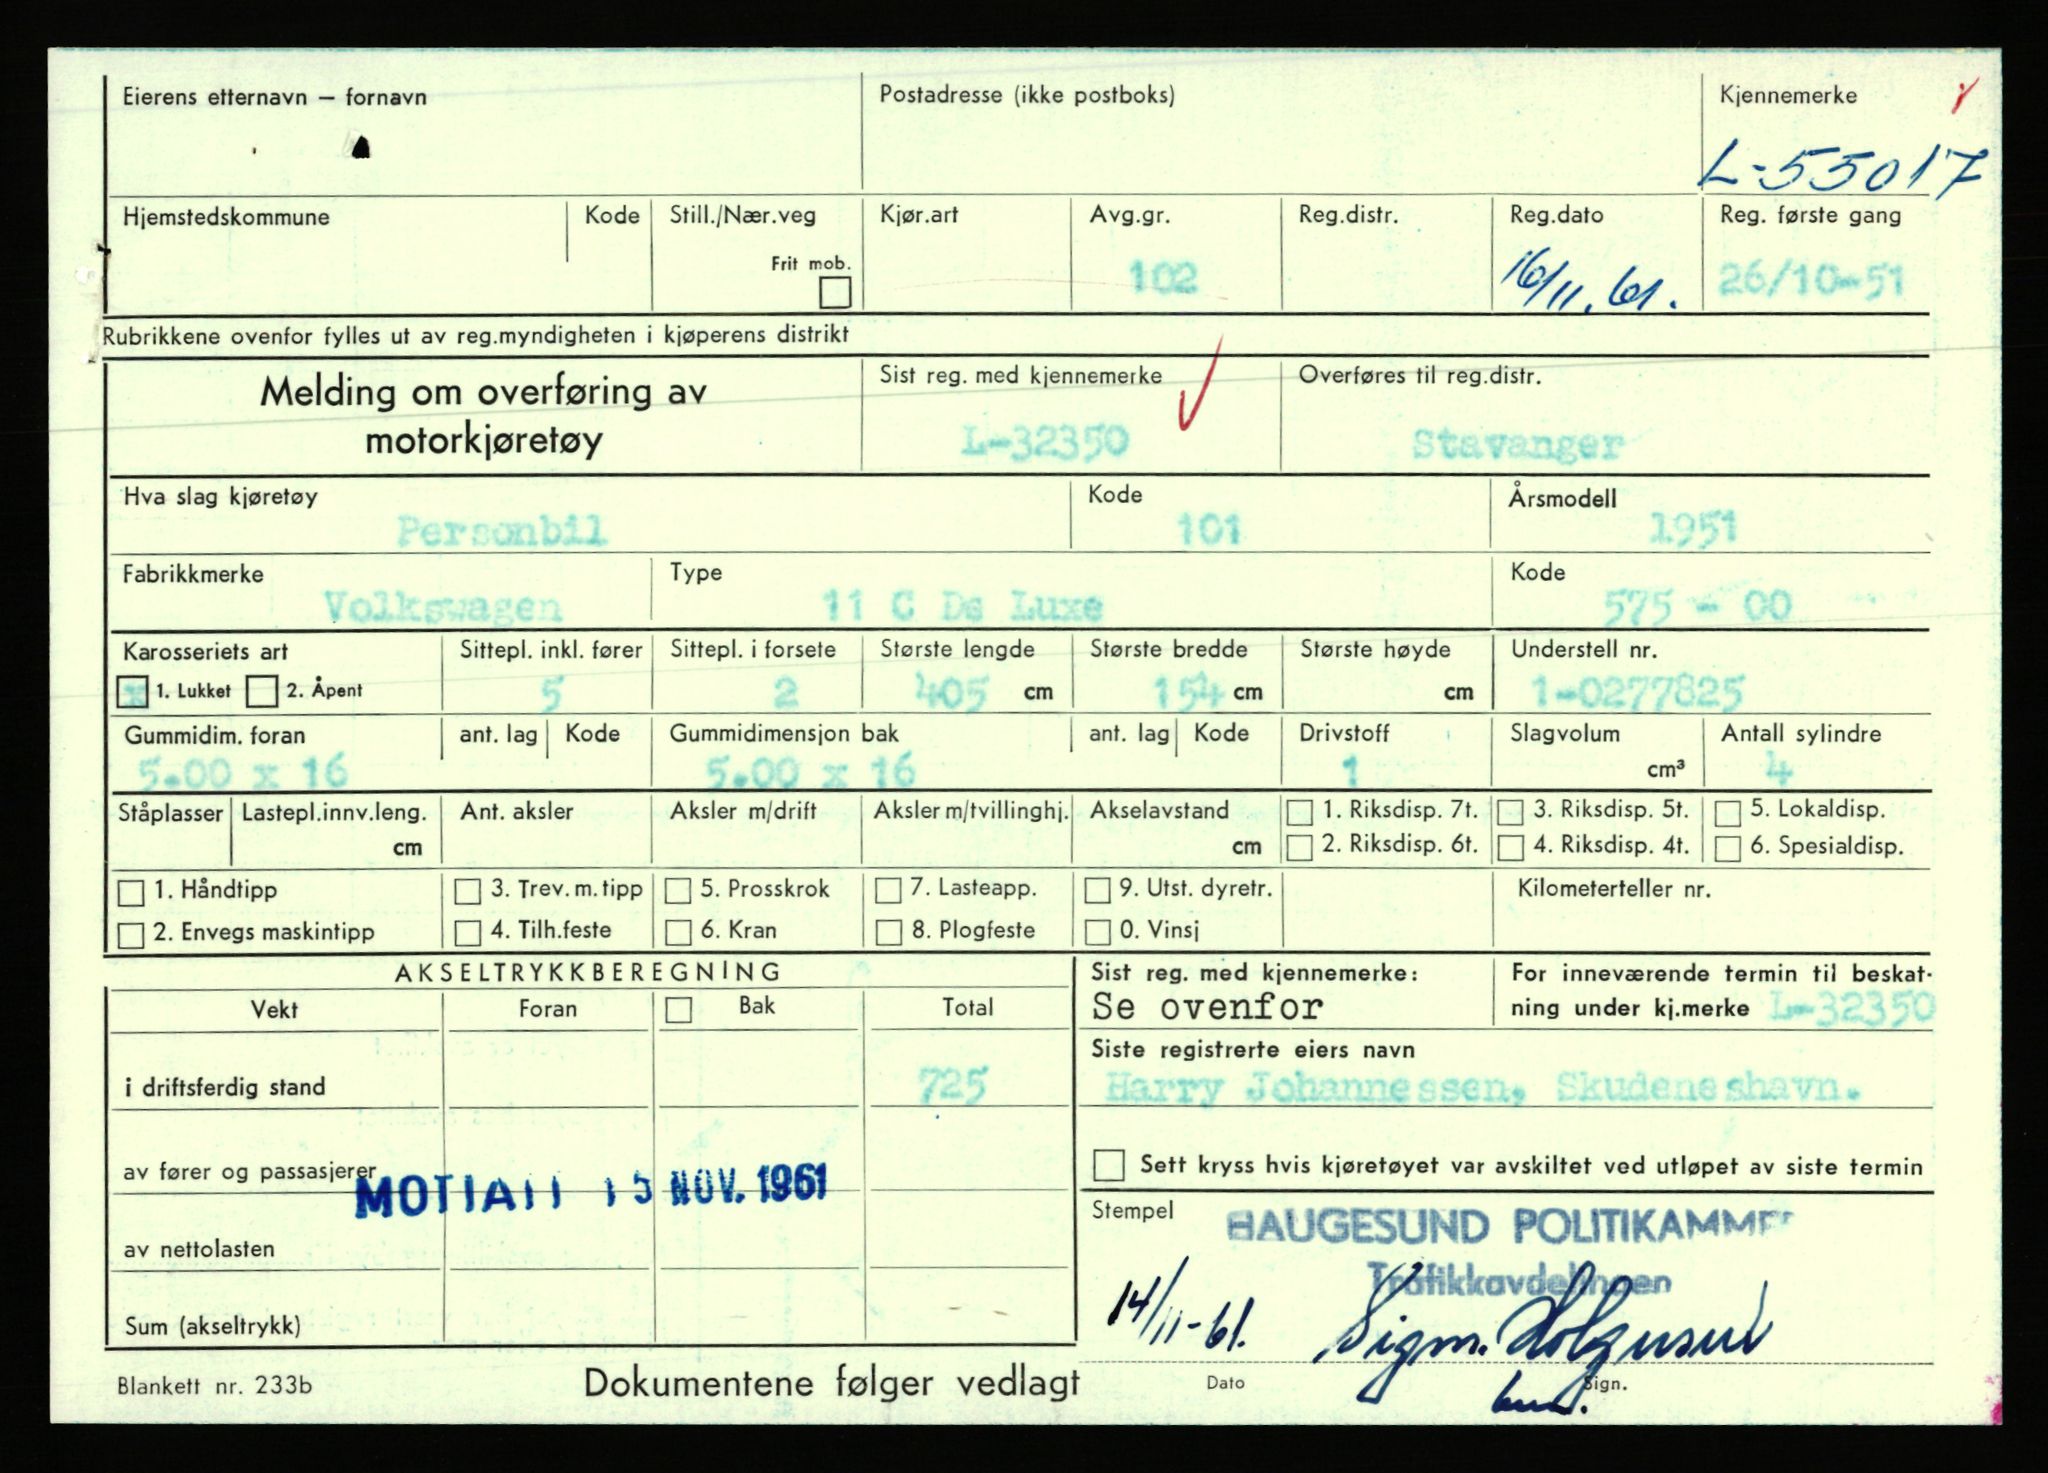 Eierens etternavn – fornavn
Postadresse (ikke postboks)
Kjennemerke
L-55017
Hjemstedskommune
Kode
Still./Nær.veg
Frit mob.
Kjør.art
Avg.gr.
102
Reg.distr.
Reg.dato
16/11.61.
Reg. første gang
26/10-51
Rubrikkene ovenfor fylles ut av reg.myndigheten i kjøperens distrikt
Melding om overføring av
motorkjøretøy
Sist reg. med kjennemerke
L-32350
Overføres til reg.distr.
Stavanger
Hva slag kjøretøy
Personbil
Kode
101
Årsmodell
1951
Fabrikkmerke
Volkswagen
Type
11 C De Luxe
Kode
575 - 00
Karosseriets art
x 1. Lukket 2. Åpent
Sittepl. inkl. fører
5
Sittepl. i forsete
2
Største lengde
405 cm
Største bredde
154 cm
Største høyde
cm
Understell nr.
1-0277825
Gummidim. foran
5.00 x 16
ant. lag
Kode
Gummidimensjon bak
5.00 x 16
ant. lag
Kode
Drivstoff
1
Slagvolum
cm³
Antall sylindre
4
Ståplasser
Lastepl.innv.leng.
cm
Ant. aksler
Aksler m/drift
Aksler m/tvillinghj.
Akselavstand
cm
1. Riksdisp. 7t.
2. Riksdisp. 6t.
3. Riksdisp. 5t.
4. Riksdisp. 4t.
5. Lokaldisp.
6. Spesialdisp.
1. Håndtipp
2. Envegs maskintipp
3. Trev. m. tipp
4. Tilh.feste
5. Prosskrok
6. Kran
7. Lasteapp.
8. Plogfeste
9. Utst. dyretr.
0. Vinsj
Kilometerteller nr.
AKSELTRYKKBEREGNING
Vekt
Foran
Bak
Total
i driftsferdig stand
725
av fører og passasjerer
15 NOV. 1961
av nettolasten
Sum (akseltrykk)
Sist reg. med kjennemerke:
Se ovenfor
For inneværende termin til beskat-
ning under kj.merke L-32350
Siste registrerte eiers navn
Harry Johannessen, Skudeneshavn.
Sett kryss hvis kjøretøyet var avskiltet ved utløpet av siste termin
Stempel
HAUGESUND POLITIKAMMER
Trafikkavdelingen
14/11-61.
Sigm.
Dato
Sign.
Blankett nr. 233b
Dokumentene følger vedlagt